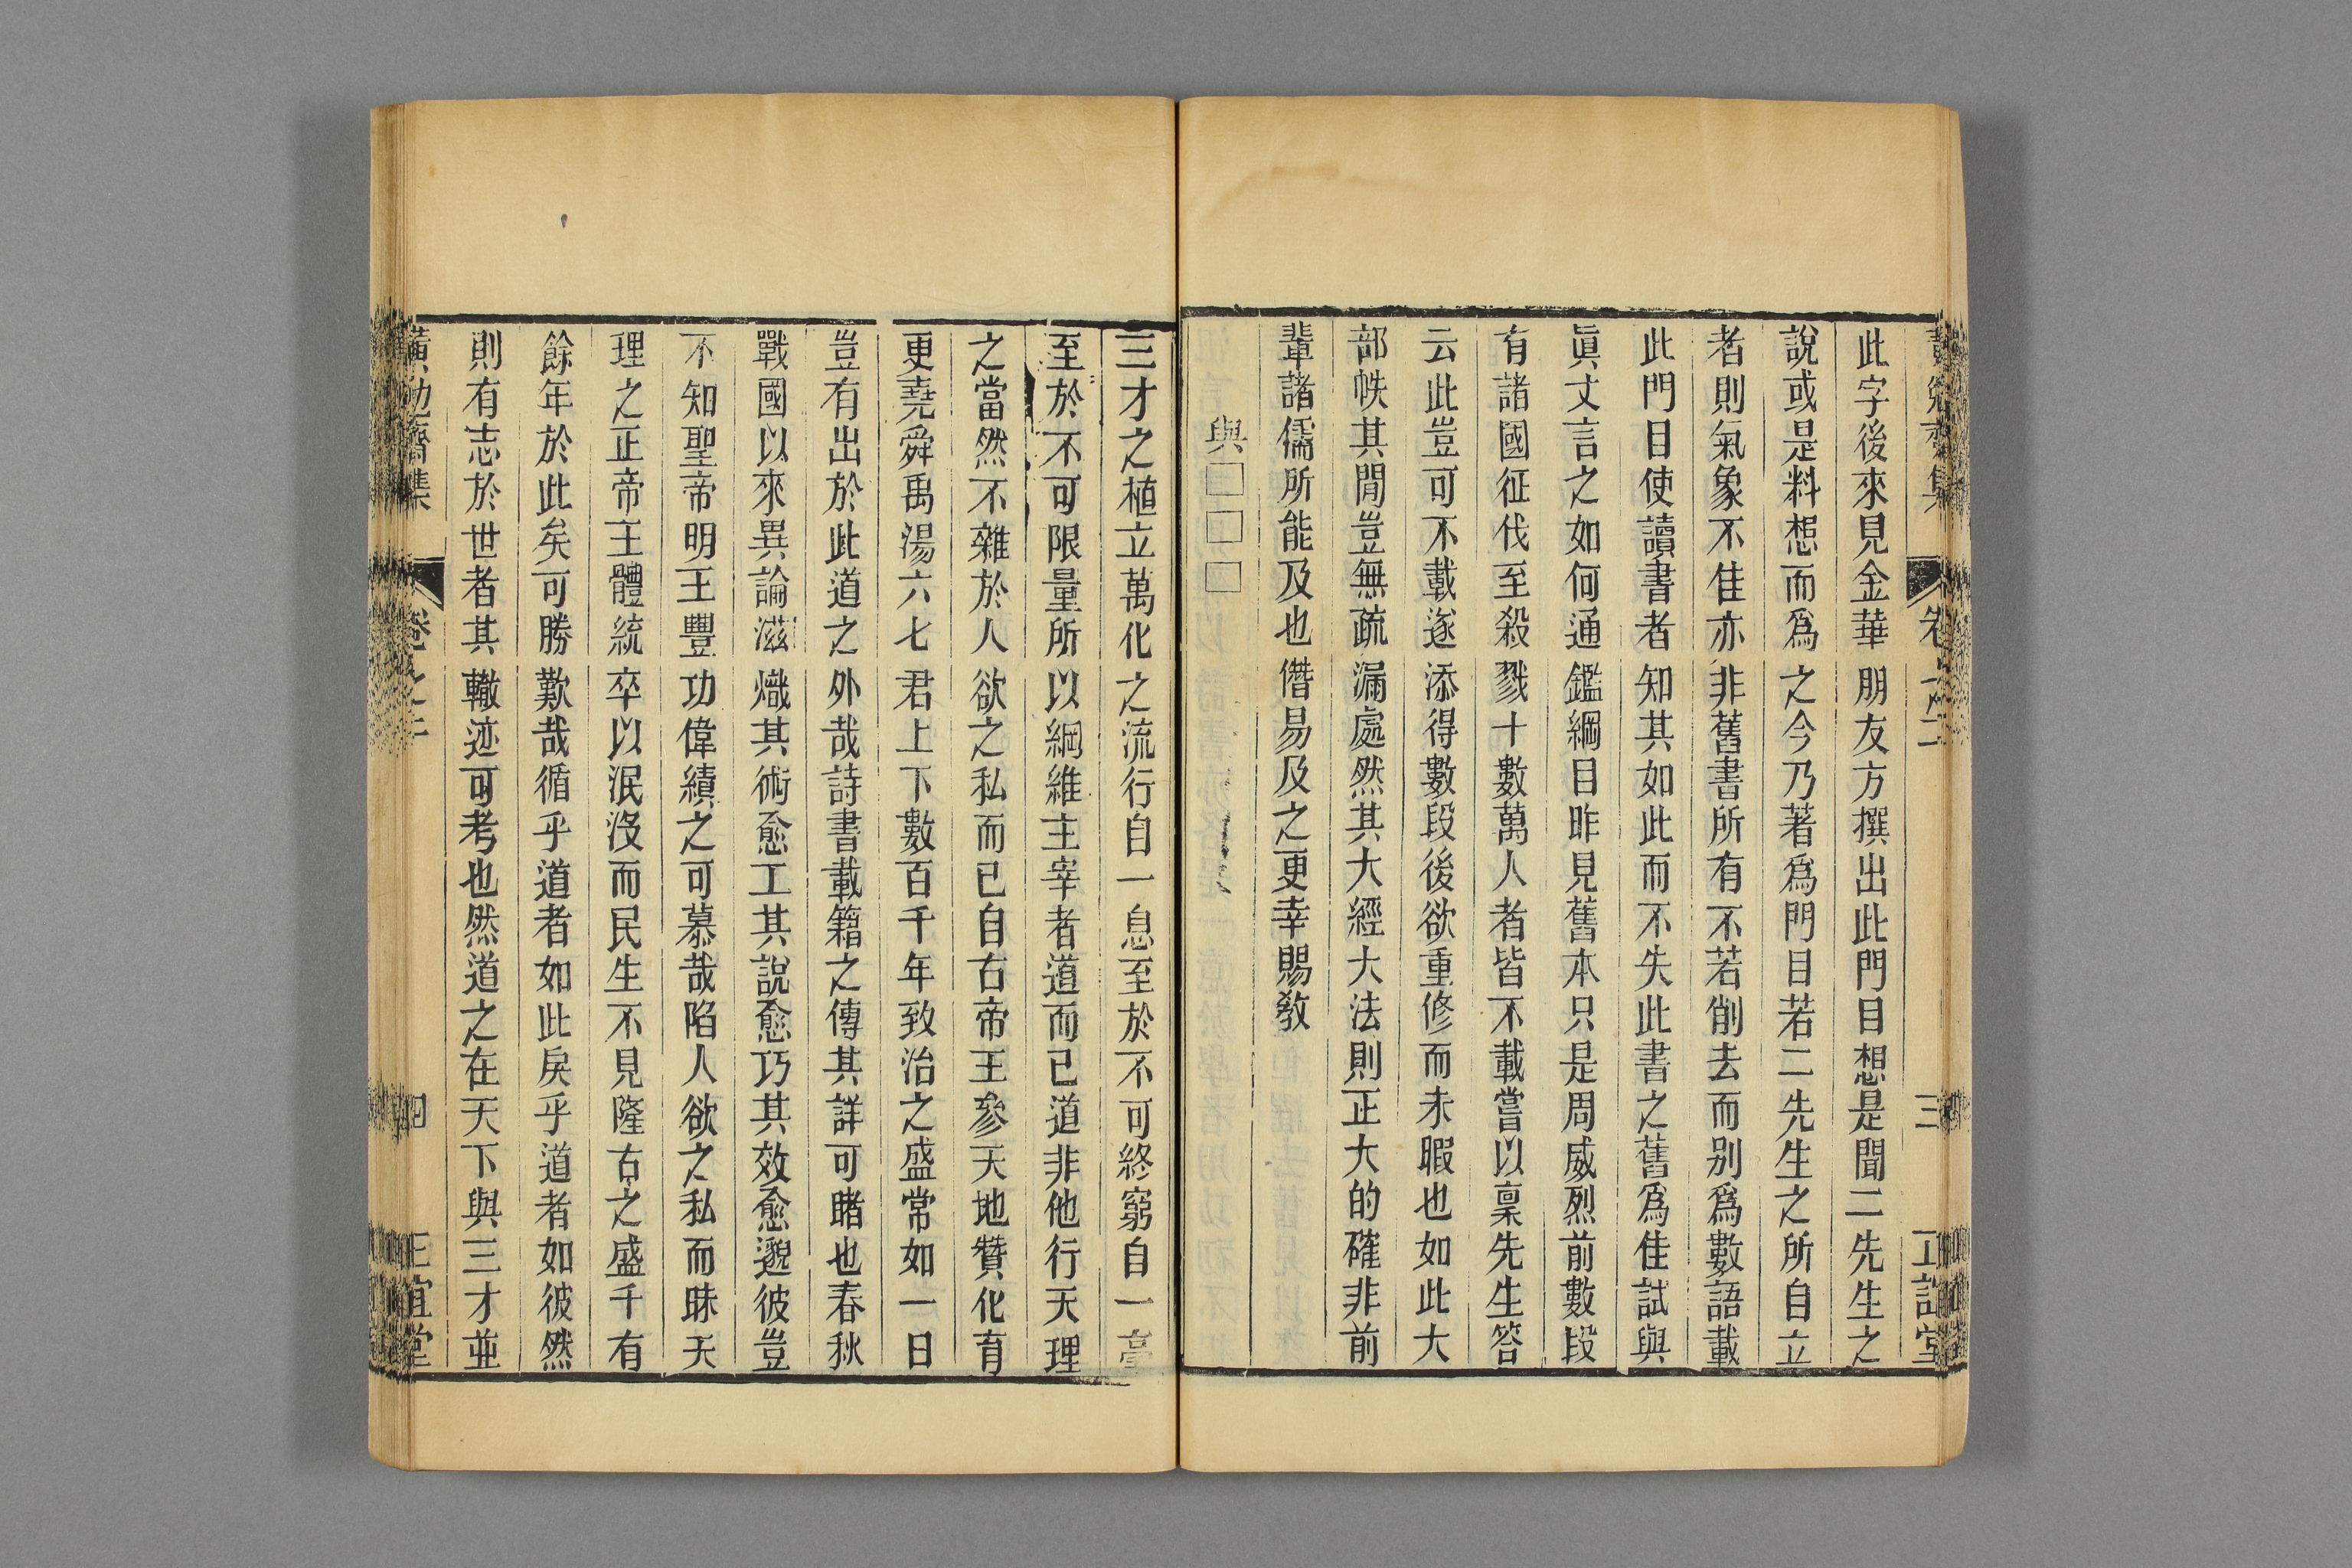 黃勉齋集
卷之二
三
正誼堂
此字後來見金華朋友方撰出此門目想是聞二先生之
說或是料想而爲之今乃著爲門目若二先生之所自立
者則氣象不佳亦非舊書所有不若削去而別爲數語載
此門目使讀書者知其如此而不失此書之舊爲佳試與
眞丈言之如何通鑑綱目昨見舊本只是周威烈前數段
有諸國征伐至殺戮十數萬人者皆不載嘗以稟先生答
云此豈可不載遂添得數段後欲重修而未暇也如此大
部帙其閒豈無疏漏處然其大經大法則正大的確非前
輩諸儒所能及也僭易及之更幸賜敎
與□□□
三才之植立萬化之流行自一息至於不可終窮自一毫
至於不可限量所以綱維主宰者道而已道非他行天理
之當然不雜於人欲之私而已自古帝王參天地贊化育
更堯舜禹湯六七君上下數百千年致治之盛常如一日
豈有出於此道之外哉詩書載籍之傳其詳可睹也春秋
戰國以來異論滋熾其術愈工其說愈巧其效愈邈彼豈
不知聖帝明王豐功偉績之可慕哉陷人欲之私而昧天
理之正帝王體統卒以泯沒而民生不見隆古之盛千有
餘年於此矣可勝歎哉循乎道者如此戾乎道者如彼然
則有志於世者其轍迹可考也然道之在天下與三才並
黃勉齋集
卷之二
四
正誼堂